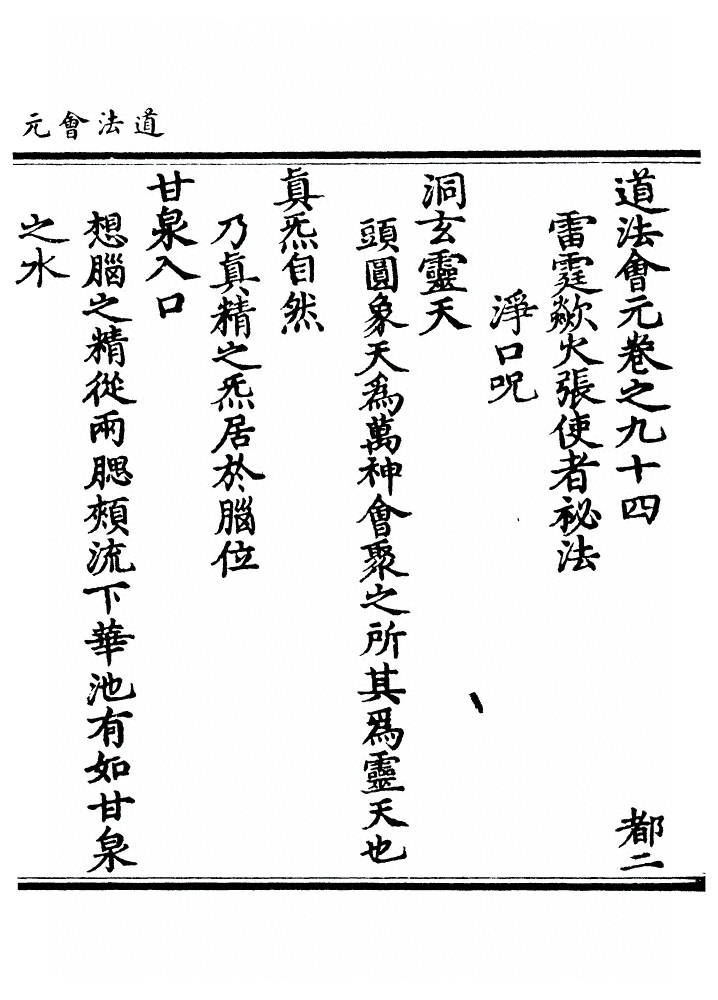 道法會元
道法會元卷之九十四　都二
雷霆歘火張使者祕法
淨口呪
洞玄靈天
頭圓象天為萬神會聚之所其為靈天也
真炁自然
乃真精之炁居於腦位
甘泉入口
想腦之精從兩腮頰流下華池有如甘泉
之水